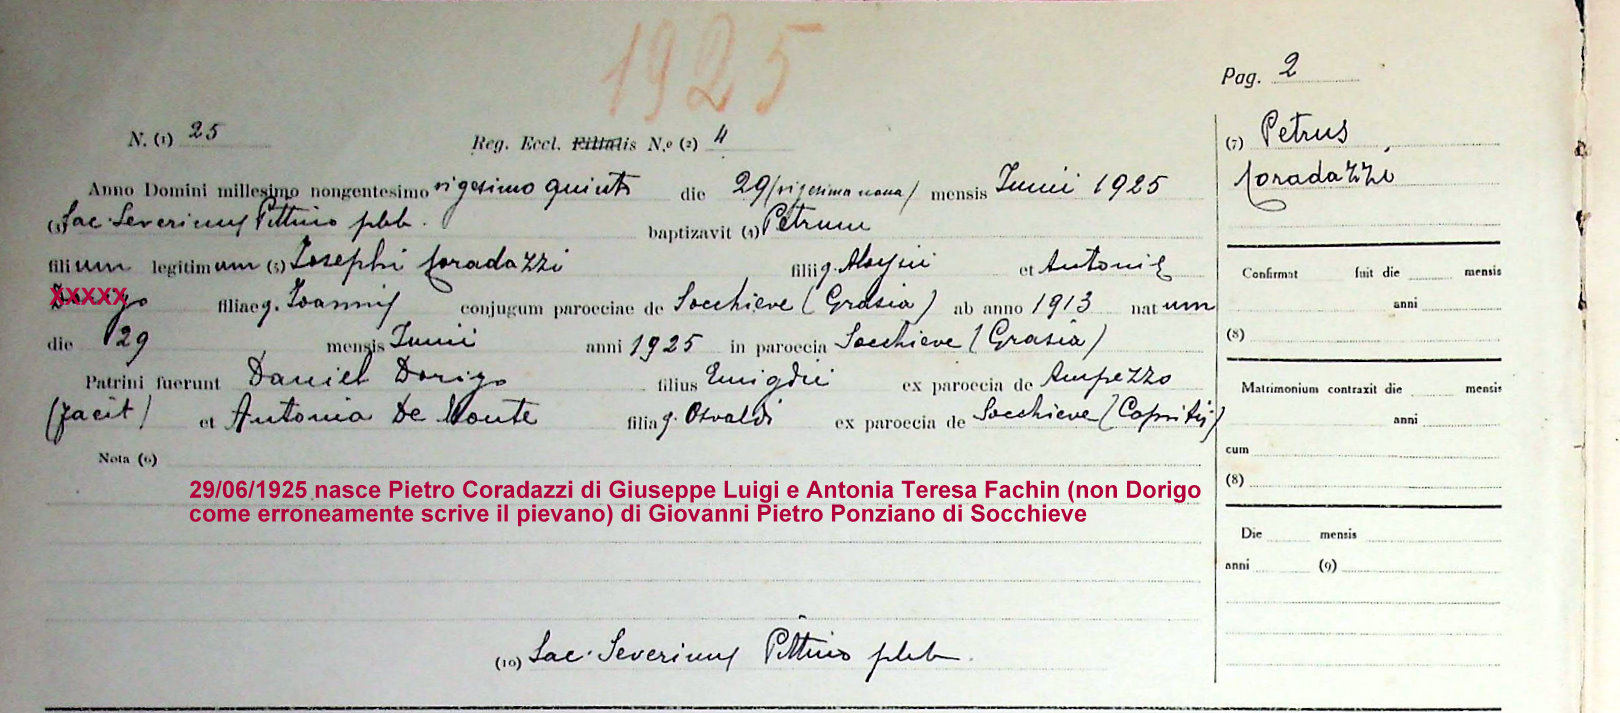 1925
Pag. 2
N. (1) 25 Reg. Eccl. Filialis N.o (2) 4
(7) Petrus
Coradazzi
Anno Domini millesimo nongentesimo vigesimo quinto die 29 (vigesima nona) mensis Junii 1925
(3) Sac. Severinus Pittino pleb. baptizavit (4) Petrum
filium legitimum (5) Josephi Coradazzi filii q. Aloysii et Antoniæ
XXXXX go filiae q. Joannis conjugum paroeciae de Socchieve (Grasia) ab anno 1913 natum
die 29 mensis Junii anni 1925 in paroecia Socchieve (Grasia)
Patrini fuerunt Daniel Dorigo filius Emigdii ex paroecia de Ampezzo
(facit) et Antonia De Monte filia q. Osvaldi ex paroecia de Socchieve (Capritiis)
Nota (6)
29/06/1925 nasce Pietro Coradazzi di Giuseppe Luigi e Antonia Teresa Fachin (non Dorigo
come erroneamente scrive il pievano) di Giovanni Pietro Ponziano di Socchieve
(10) Sac. Severinus Pittino pleb.
Confirmat fuit die mensis
anni
(8)
Matrimonium contraxit die mensis
anni
cum
(8)
Die mensis
anni (9)